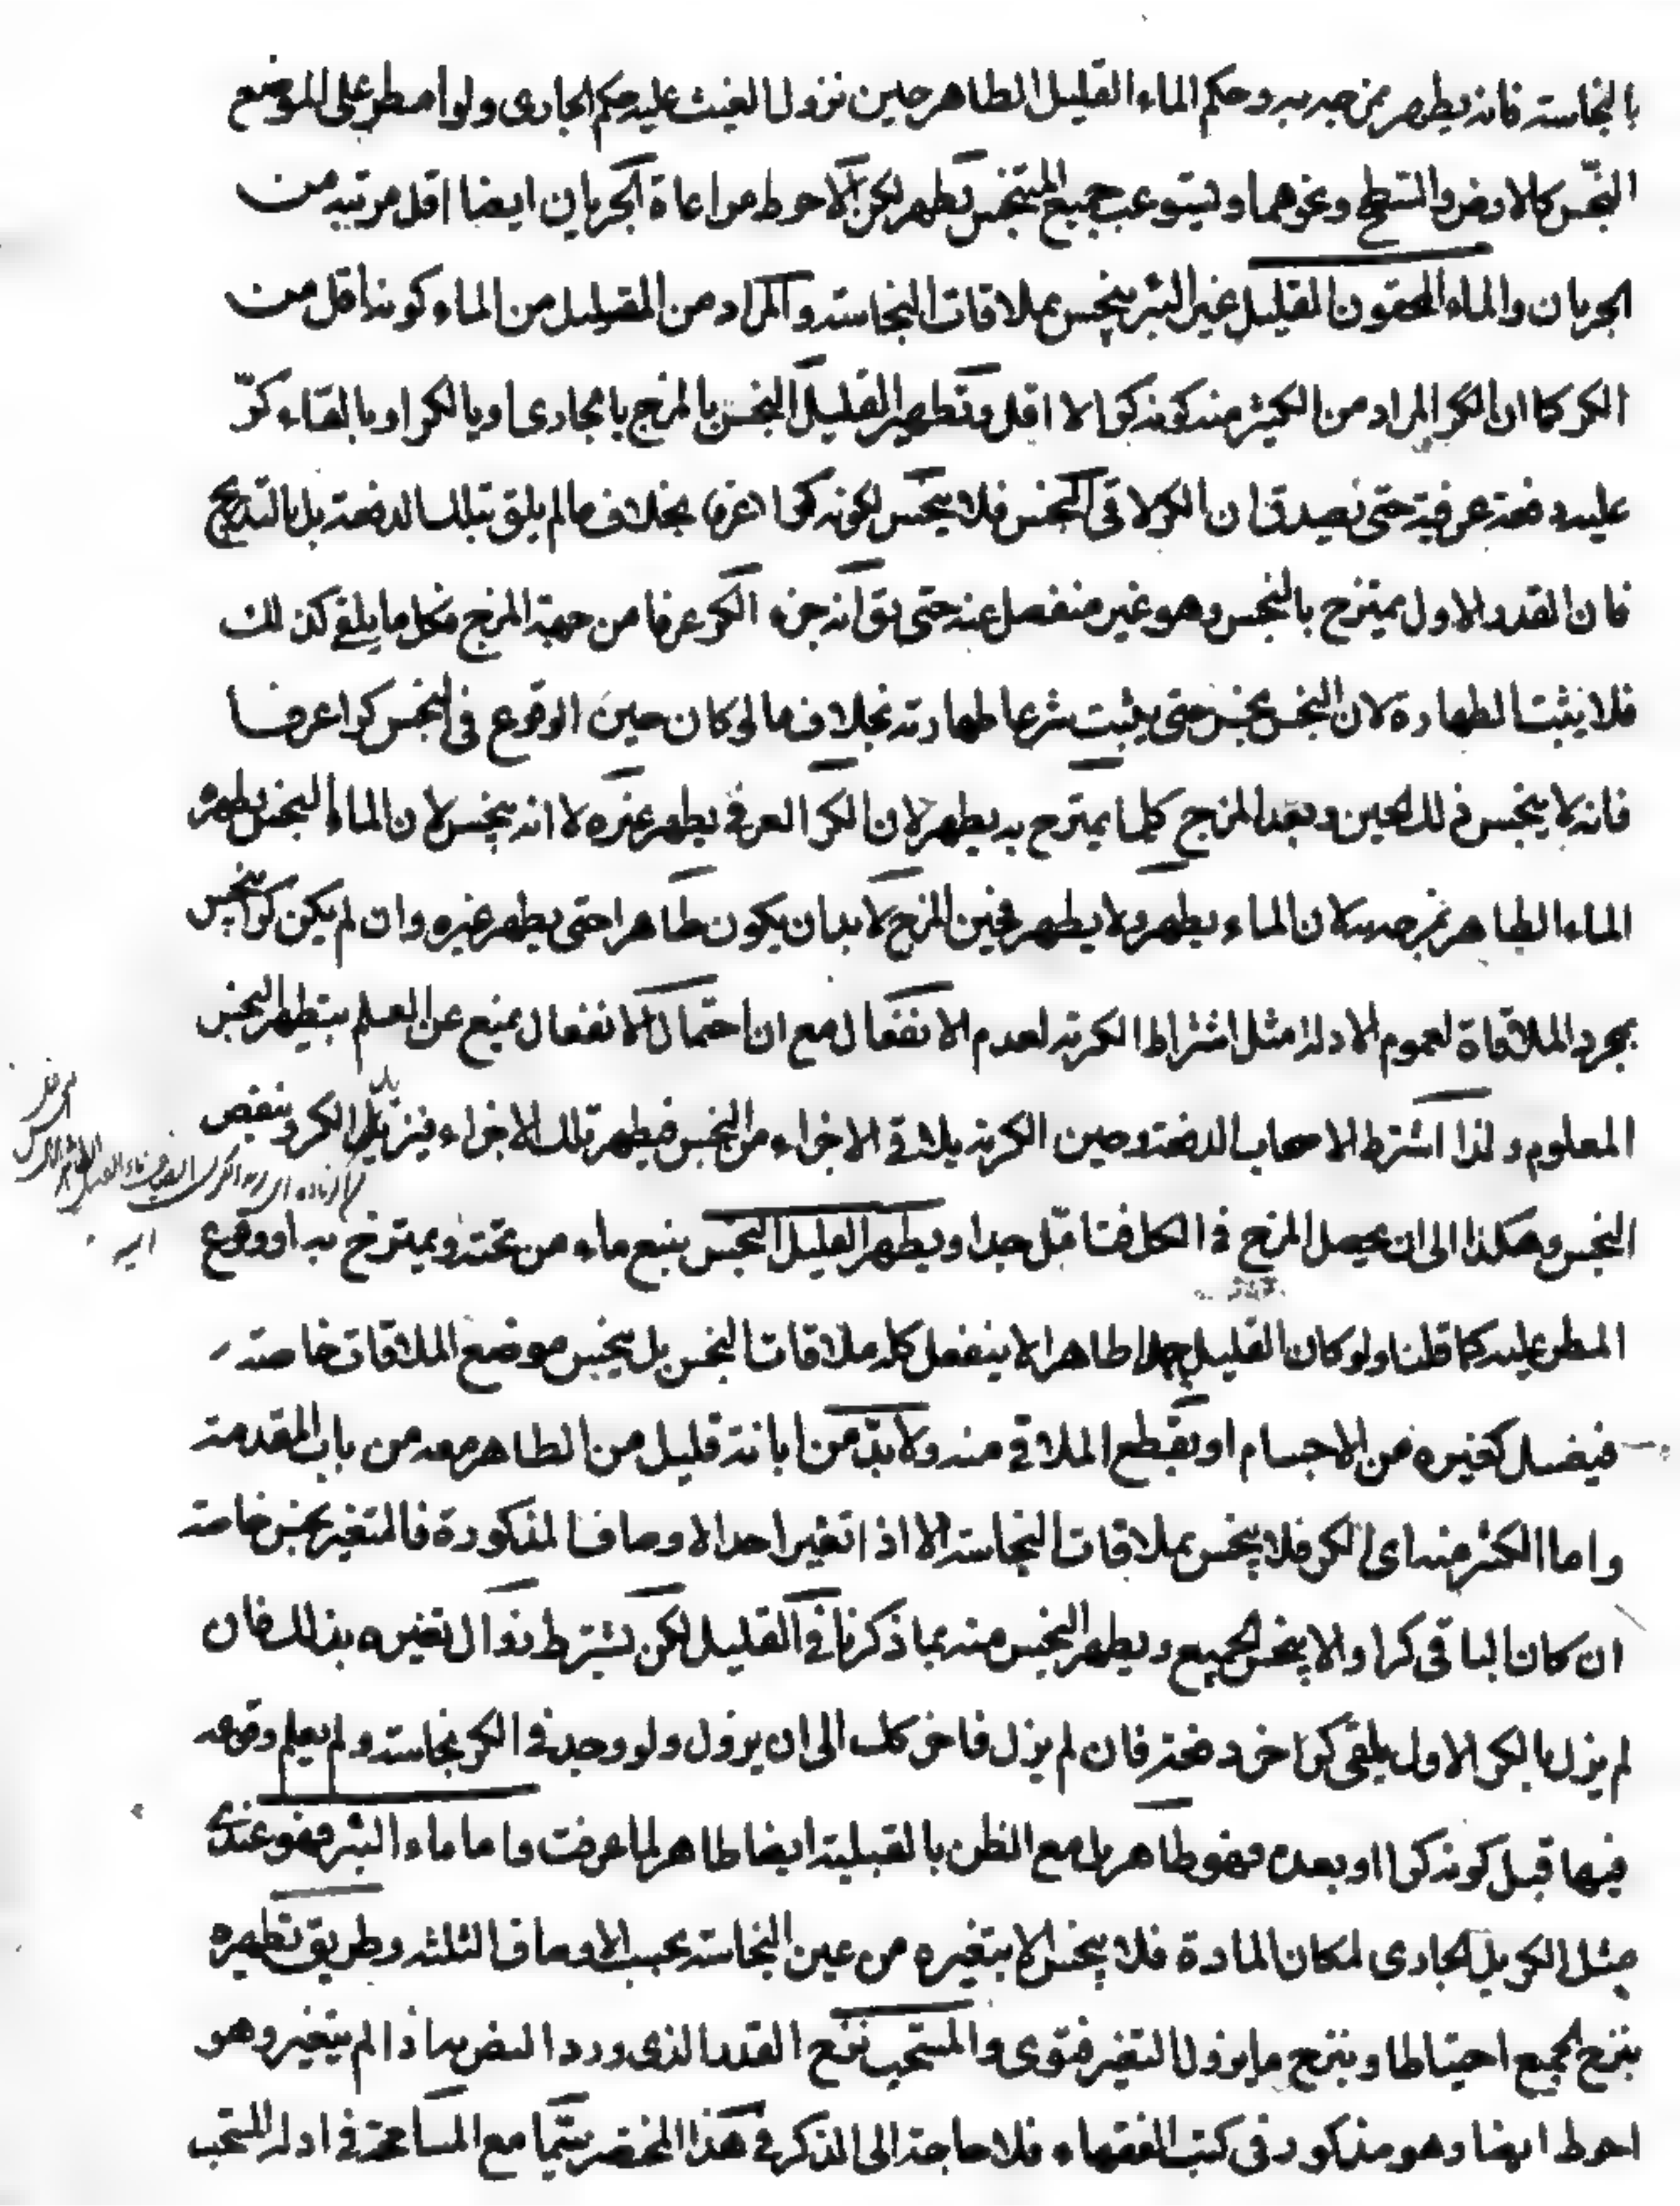 بالنجاسة فانه يطهر بمزجه به وحكم الماء القليل الطاهر حين نزول الغيث عليه حكم الجارى ولو امطر على الموضع
النجس كالارض والسطح ونحوهما ويستوعب جميع المتنجس يطهر لكن الاحوط مراعاة الجريان ايضا اقل مرتبه من
الجريان والماء المحقون القليل غير البئر ينجس بملاقات النجاسة والمراد من القليل من الماء كونه اقل من
الكر كما ان الكر المراد من الكثير منه كونه كرا لا اقل وتطهير القليل النجس بالمزج بالجارى او بالكر او بالقاء كرّ
عليه دفعة عرفية حتى يصدق ان الكر لاقى النجس فلا ينجس لكونه كرا عرفا بخلاف ما لم يلق بتلك الدفعة بل بالتدريج
فان القدر الاول يمتزج بالنجس وهو غير منفصل عنه حتى يق انه جزء الكر عرفا من جهة المزج فكل ما يلقى كذلك
فلا يثبت الطهارة لان النجس نجس حتى يثبت شرعا طهارته بخلاف ما لو كان حين الوقوع فى النجس كرا عرفا
فانه لا ينجس فى ذلك الحين وبعد المزج كلما يمتزج به يطهر لان الكر العرفى يطهر غيره لا انه ينجس لان الماء النجس يطهره
الماء الطاهر بمزجه لان الماء يطهر ولا يطهر فحين المزج لا بد ان يكون طاهرا حتى يطهر غيره وان لم يكن كرا ينجس
بمجرد الملاقاة لعموم الادلة مثل اشتراط الكرية لعدم الانفعال مع ان احتمال الانفعال يمنع عن العلم بتطهير النجس
المعلوم ولذا اشترط الاصحاب الدفعة وحين الكرية يلاقى الاجزاء من النجس فيطهر تلك الاجزاء فيتزيد الكر وينقص
النجس وهكذا الى ان يحصل المزج فى الكل فتامّل جدا ويطهر القليل النجس بنبع ماء من تحته ويمتزج به او وقوع
المطر عليه كما قلنا ولو كان القليل طاهرا لا ينفعل كله ملاقات النجس بل ينجس موضع الملاقات خاصة
فيغسل كغيره من الاجسام او يقطع الملاقى منه ولا بدّ من ابانة قليل من الطاهر معه من باب المقدمة
واما الكثير منه اى الكر فلا ينجس بملاقات النجاسة الا اذا تغير احد الاوصاف المذكورة فالمتغير نجس خاصة
ان كان الباقى كرا والا ينجس الجميع ويطهر النجس منه بما ذكرنا فى القليل لكن يشترط زوال تغيره بذلك فان
لم يزل بالكر الاول يلقى كرا اخر دفعة فان لم يزل فاخر كك الى ان يزول ولو وجد فى الكر نجاسة ولم يعلم وقوعه
فيها قبل كونه كرا او بعده فهو طاهر بل مع الظن بالقبلية ايضا طاهر لما عرفت واما ماء البئر فهو عندى
مثل الكر بل الجارى لمكان المادة فلا ينجس الا بتغيره من عين النجاسة بحسب الاوصاف الثلثه وطريق تطهيره
بنزح الجميع احتياطا وبنزح ما يزول التغير فتوى والمستحب نزح القدر الذى ورد النص به اذا لم يتغير وهو
احوط ايضا وهو مذكور فى كتب الفقهاء فلا حاجة الى الذكر فى هذا المختصر سيّما مع المسامحة فى ادلة المستحب